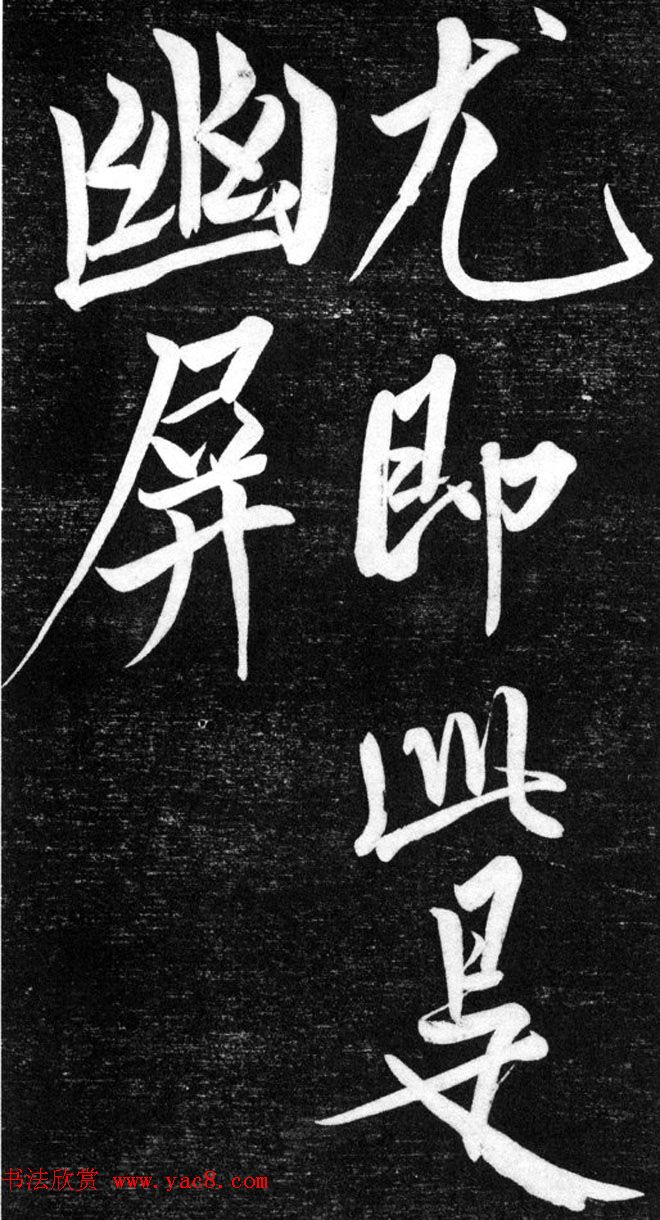 尤即此是
幽屏
书法欣赏 www.yac8.com